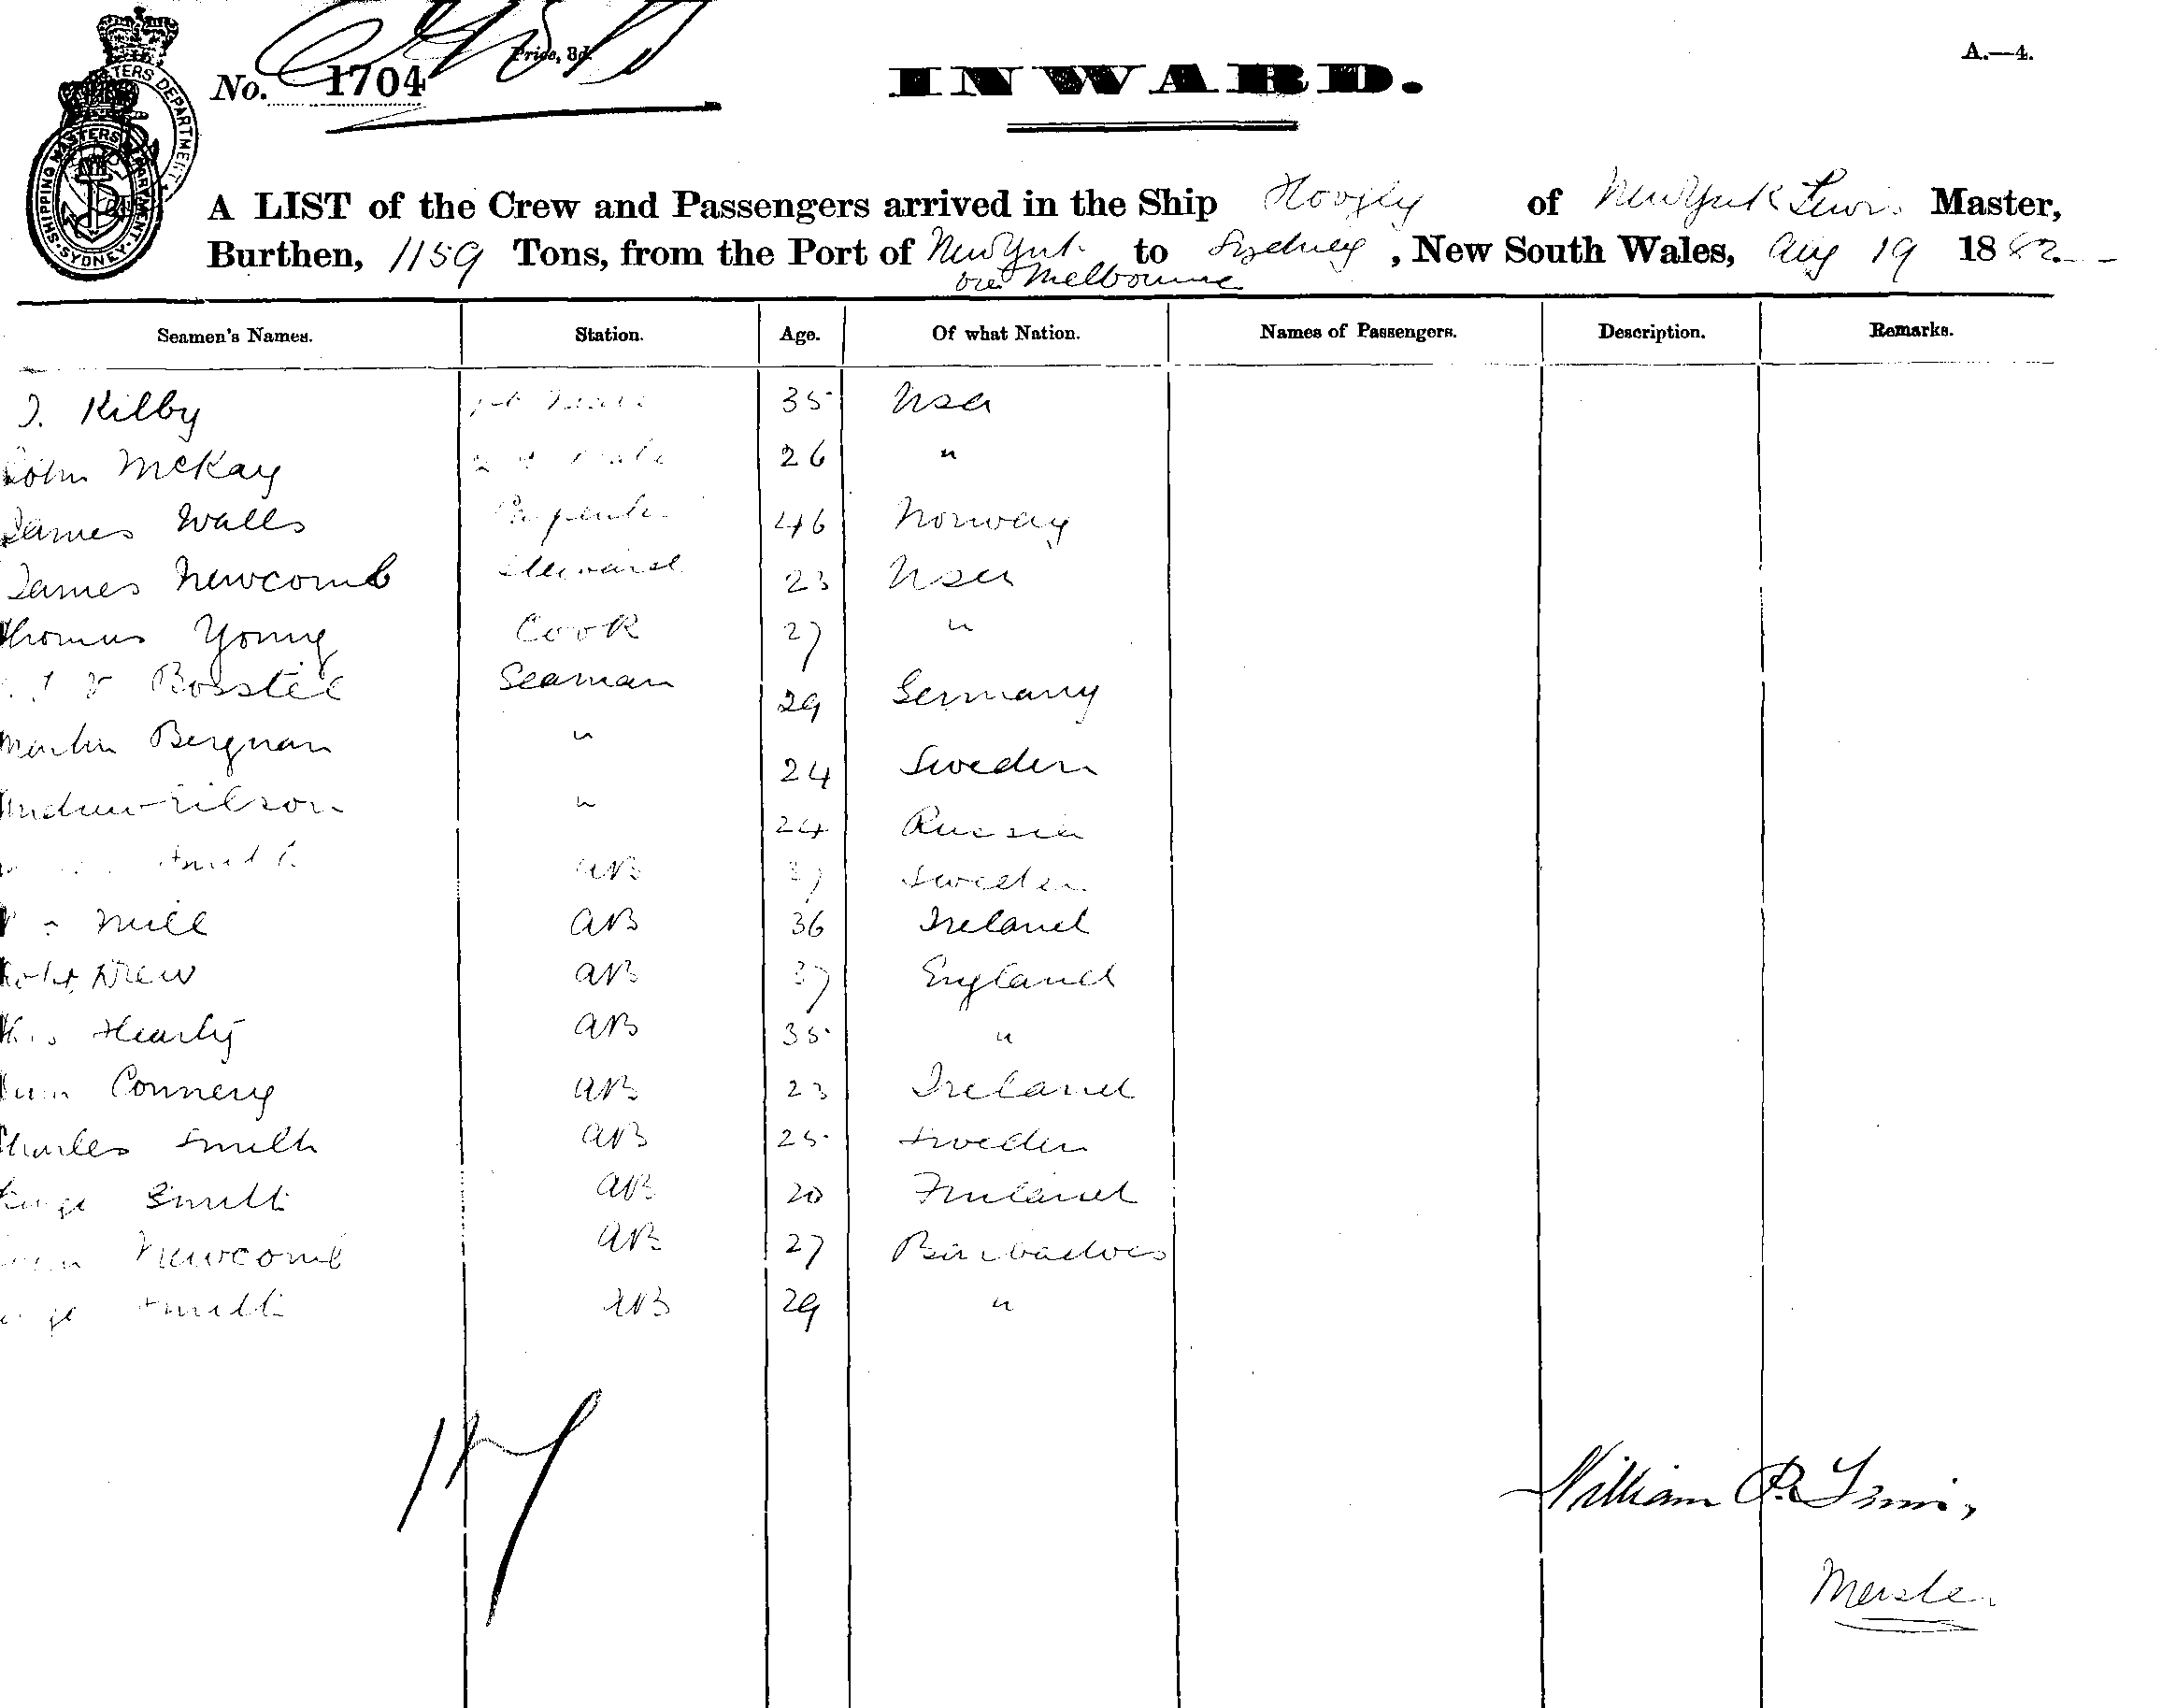 No. 1704
Price, 3d.
INWARD.
A.—4.
SHIPPING MASTERS DEPARTMENT SYDNEY
A LIST of the Crew and Passengers arrived in the Ship Hoogly of New York Lewis Master,
Burthen, 1159 Tons, from the Port of New York to Sydney, New South Wales, Aug 19 1882
via Melbourne
Seamen's Names. Station. Age. Of what Nation. Names of Passengers. Description. Remarks.
J. Kilby 1st Mate 35 Usa
John McKay 2nd Mate 26 "
James Walls Carpenter 46 Norway
James Newcomb Steward 23 Usa
Thomas Young Cook 27 "
Seaman 29 Germany
Martin Bergman " 24 Sweden
Andrew " 24 Russia
AB 37 Sweden
AB 36 Ireland
Robt Drew AB 37 England
AB 35 "
Connery AB 23 Ireland
Charles Smith AB 25 Sweden
George Smith AB 20 Finland
Newcomb AB 27 Barbadoes
George Smith AB 29 "
17
William P. Lewis,
Master